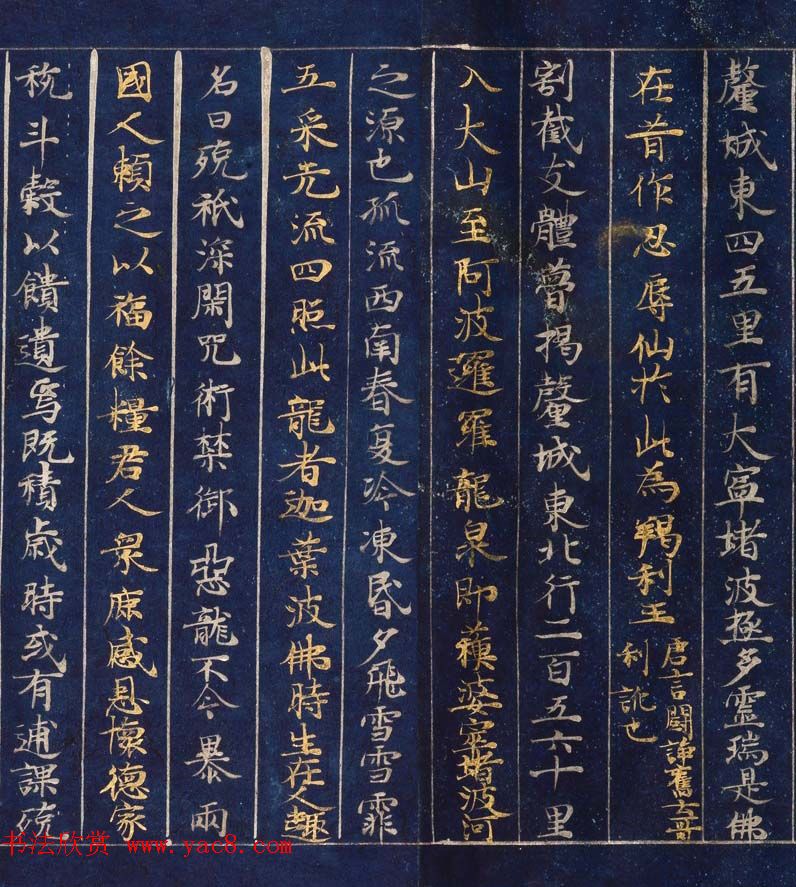 釐城東四五里有大窣堵波極多靈瑞是佛
在昔作忍辱仙於此為羯利王
唐言鬪諍舊云哥
利訛也
割截支體瞢揭釐城東北行二百五六十里
入大山至阿波邏羅龍泉即蘇婆窣堵波河
之源也孤流西南春夏冷凍昏夕飛雪雪霏
五采光流四照此龍者迦葉波佛時生在人趣
名曰殑祇深閑咒術禁御惡龍不令暴雨
國人賴之以稸餘糧君人眾庶感恩懷德家
稅斗穀以饋遺焉既積歲時或有逋課殑
书法欣赏 www.yac8.com